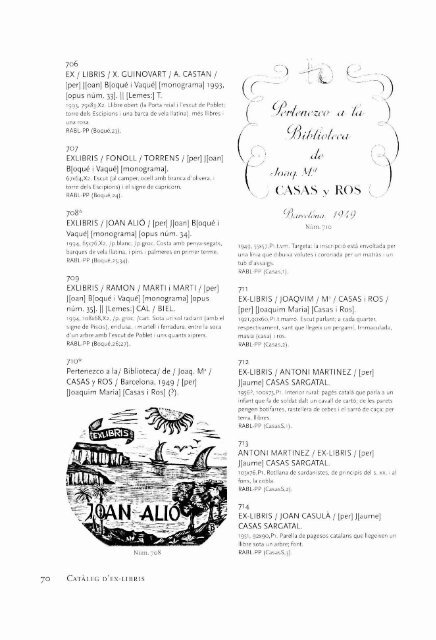 706
EX / LIBRIS / X. GUINOVART / A. CASTAN /
[per] J[oan] B[oqué i Vaqué] [monograma] 1993,
[opus núm. 33]. || [Lemes:] T.
1993, 79x83,X2. Llibre obert (la Porta reial i l'escut de Poblet;
torre dels Escipions i una barca de vela llatina), més llibres i
una rosa.
RABL-PP (Boqué,23).
707
EXLIBRIS / FONOLL / TORRENS / [per] J[oan]
B[oqué i Vaqué] [monograma].
67x64,X2. Escut (al camper, ocell amb branca d'olivera, i
torre dels Escipions) i el signe de capricorn.
RABL-PP (Boqué,24).
708*
EXLIBRIS / JOAN ALIÓ / [per] J[oan] B[oqué i
Vaqué] [monograma] [opus núm. 34].
1994, 65x76,X2, /p.blanc, /p.groc. Costa amb penya-segats,
barques de vela llatina, i pins i palmeres en primer terme.
RABL-PP (Boqué,25,34).
709
EXLIBRIS / RAMON / MARTI i MARTI / [per]
J[oan] B[oqué i Vaqué] [monograma] [opus
núm. 35]. || [Lemes:] CAL / BIEL.
1994, 108x68,X2, /p. groc, /cart. Sota un sol radiant (amb el
signe de Piscis), enclusa, i martell i ferradura, entre la soca
d'un arbre amb l'escut de Poblet i uns quants xiprers.
RABL-PP (Boqué,26,27).
710*
Pertenezco a la/ Biblioteca/ de / Joaq. Mª /
CASAS y ROS / Barcelona, 1949 / [per]
[Joaquim Maria] [Casas i Ros] (?).
EXLIBRIS
JOAN ALIÓ
Núm. 708
Pertenezco a la
Biblioteca
de
Joaq. Mª
CASAS y ROS
Barcelona, 1949
Núm. 710
1949, 53x57,P1.t.vm. Targeta: la inscripció està envoltada per
una línia que dibuixa volutes i coronada per un matràs i un
tub d'assaigs.
RABL-PP (Casas,1).
711
EX-LIBRIS / JOAQVIM / Mª / CASAS i ROS /
[per] [Joaquim Maria] [Casas i Ros].
RABL-PP (Casas,2).
712
EX-LIBRIS / ANTONI MARTINEZ / [per]
J[aume] CASAS SARGATAL.
1956?, 100x75,P1. Interior rural: pagès català que parla a un
infant que fa de soldat dalt un cavall de cartó; de les parets
pengen botifarres, rastellera de cebes i el sarró de caça; per
terra, llibres.
RABL-PP (CasasS,1).
713
ANTONI MARTINEZ / EX-LIBRIS / [per]
J[aume] CASAS SARGATAL.
103x76,P1. Rotllana de sardanistes, de principis del s. XX, i al
fons, la cobla.
RABL-PP (CasasS,2).
714
EX-LIBRIS / JOAN CASULÀ / [per] J[aume]
CASAS SARGATAL.
1951, 92x90,P1. Parella de pagesos catalans que llegeixen un
llibre sota un arbre; font.
RABL-PP (CasasS,3).
70 CATÀLEG D'EX-LIBRIS